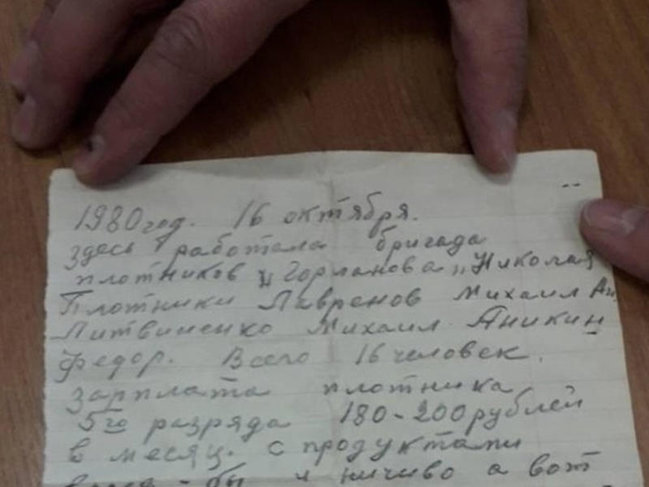 1980 год. 16 октября.
здесь работала бригада
плотников „Горланова" Николая
Плотники Лавренов Михаил Ан
Литвиненко Михаил. Аникин
Федор. Всего 16 человек.
зарплата плотника
5го разряда 180-200 рублей
в месяц. с продуктами
бы и ничиво а вот